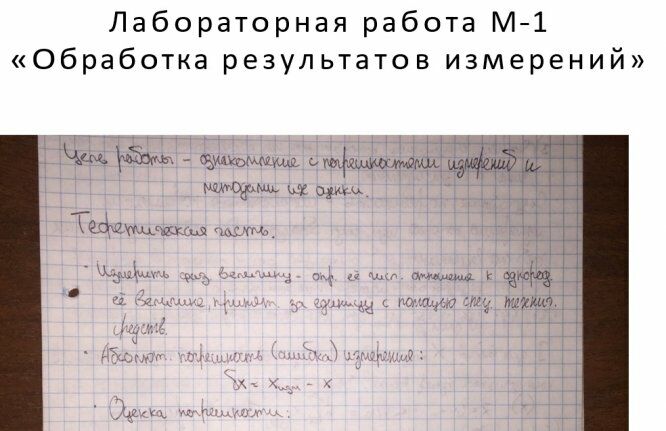 Лабораторная работа М-1
«Обработка результатов измерений»
Цель работы - ознакомление с погрешностями измерений и
методами их оценки.
Теоретическая часть.
· Измерить физ. величину - опр. её числ. отношение к однород.
ей величине, принят. за единицу с помощью спец. технич.
средств.
· Абсолют. погрешность (ошибка) измерения:
δx = xизм - x
· Оценка погрешности: